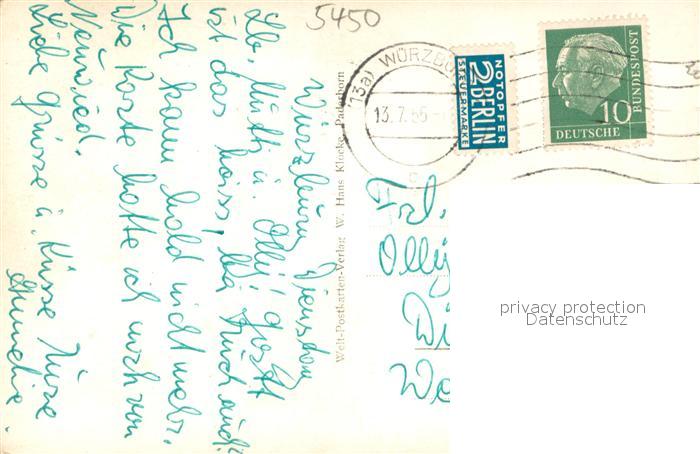 5450
Würzburg Dienstag
Lb. Mutti u. Olly! Gott
ist das heiss!
Ich kann bald nicht mehr.
Die Karte hatte ich noch von
Neuwied.
Liebe Grüsse u. Küsse Eure
Welt-Postkarten-Verlag W. Hans Klocke, Paderborn
(13a) WÜRZBU
13.7.55
c
NOTOPFER
2 BERLIN
STEUERMARKE
10
DEUTSCHE
BUNDESPOST
Frl.
Olly
privacy protection
Datenschutz